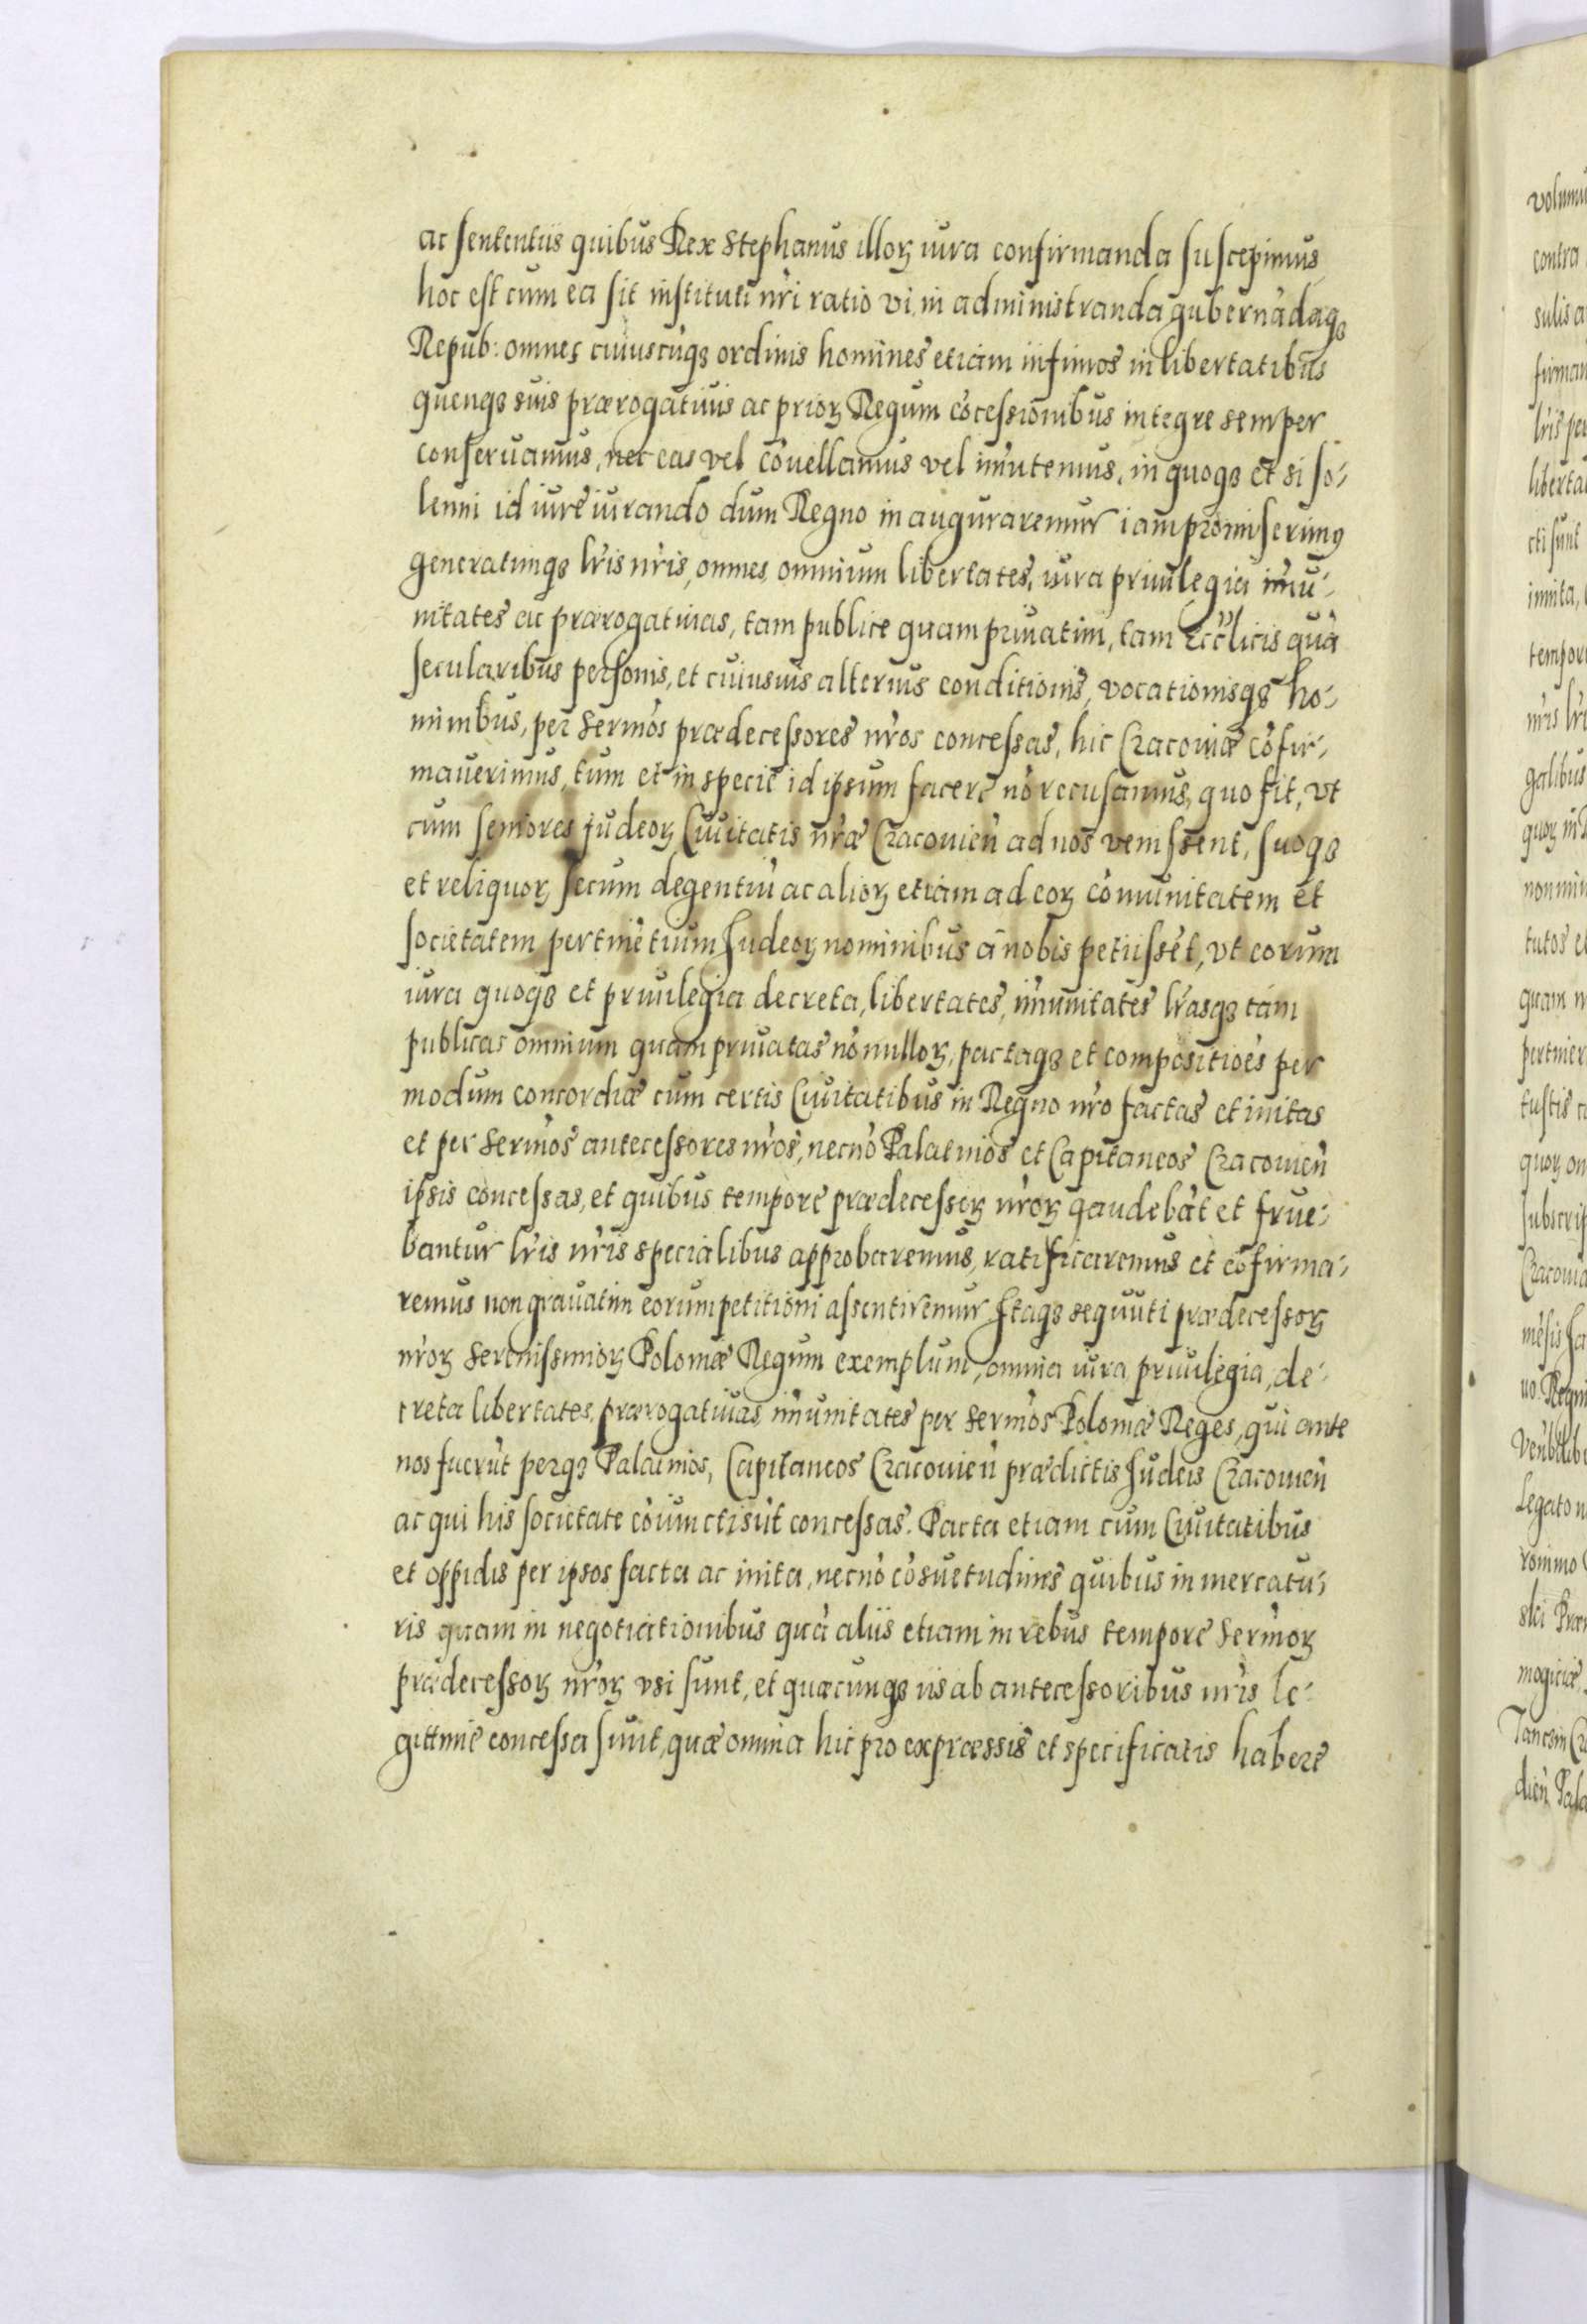 ac sententiis quibus Rex Stephanus illoꝝ iura confirmanda suscepimus
hoc est cum ea sit instituti nr̃i ratio vi in administranda gubernãdaqȝ
Repub: omnes cuiuscũqȝ ordinis homines etiam infimos in libertatibus
quenqȝ suis prærogativis ac prioꝝ Regum cõcessionibus integre semper
conservamus, nec eas vel cõvellamus vel im̃utemus, in quoqȝ et si so-
lenni id iure iurando dum Regno inauguraremur iam promiserimꝰ
generatimqȝ lr̃is nr̃is, omnes omnium libertates, iura privilegia im̃u-
nitates ac prærogativas, tam publice quam privatim, tam Eccl̃icis quã
secularibus personis, et cuiusvis alterius conditionis, vocationisqȝ ho-
minibus, per Serm̃os prædecessores nr̃os concessas, hic Cracoviæ cõfir-
maverimus, tum et in specie id ipsum facere nõ recusamus, quo fit, vt
cum seniores Judeoꝝ Civitatis nr̃æ Cracovien̄ ad nos venissent, suoqȝ
et reliquoꝝ secum degentiũ ac alioꝝ etiam ad eoꝝ cõmunitatem et
societatem pertinẽtium Judeoꝝ nominibus â nobis petiissẽt, vt eorum
iura quoqȝ et privilegia decreta, libertates, im̃unitates lr̃asqȝ tam
publicas omnium quam privatas nõnulloꝝ, pactaqȝ et compositiões per
modum concordiæ cum certis Civitatibus in Regno nr̃o factas et initas
et per Serm̃os antecessores nr̃os, necnõ Palatinos et Capitaneos Cracovien̄
ipsis concessas, et quibus tempore prædecessoꝝ nr̃oꝝ gaudebãt et frue-
bantur lr̃is nr̃is specialibus approbaremus, ratificaremus et cõfirma-
remus non gravatim eorum petitioni assentiremur Itaqȝ sequuti prædecessoꝝ
nr̃oꝝ Serenissimoꝝ Poloniæ Regum exemplum, omnia iura privilegia, de-
creta libertates, prærogativas im̃unitates per Serm̃os Poloniæ Reges, qui ante
nos fuerũt perqȝ Palatinos, Capitaneos Cracovien̄ prædictis Judeis Cracovien̄
ac qui his societate cõiuncti sũt concessas. Pacta etiam cum Civitatibus
et oppidis per ipsos facta ac inita, necnõ cõsuetudines quibus in mercatu-
ris quam in negotiationibus quã aliis etiam in rebus tempore Serm̃oꝝ
prædecessoꝝ nr̃oꝝ vsi sunt, et quæcunqȝ iis ab antecessoribus nr̃is le-
gittime concessa sunt, quæ omnia hic pro expræssis et specificatis habere